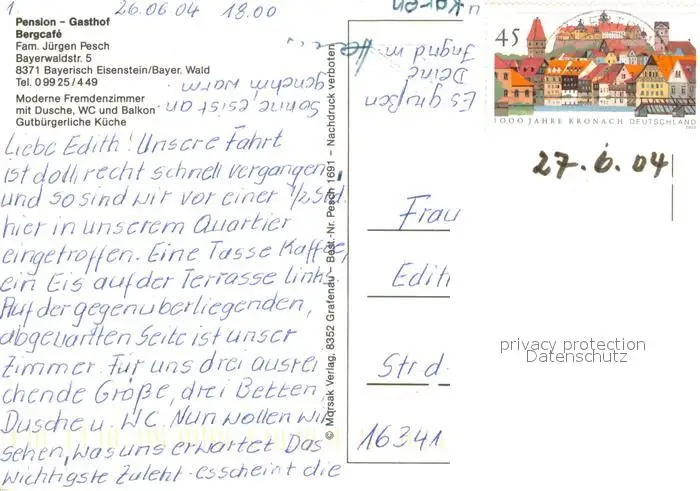 1. 26.06.04 18.00
Pension – Gasthof
Bergcafé
Fam. Jürgen Pesch
Bayerwaldstr. 5
8371 Bayerisch Eisenstein/Bayer. Wald
Tel. 0 99 25 / 4 49
Moderne Fremdenzimmer
mit Dusche, WC und Balkon
Gutbürgerliche Küche
Liebe Edith! Unsere Fahrt
ist doll recht schnell vergangen,
und so sind wir vor einer 1/2 Std.
hier in unserem Quartier
eingetroffen. Eine Tasse Kaffee,
ein Eis auf der Terrasse links.
Auf der gegenüberliegenden,
abgewandten Seite ist unser
Zimmer. Für uns drei ausrei
chende Größe, drei Betten,
Dusche u. WC. Nun wollen wir
sehen, was uns erwartet. Das
wichtigste zuletzt - es scheint die
Sonne es ist an-
genehm warm.
Es grüßen
Deine
Ingrid m.
u. Karen
© Morsak Verlag, 8352 Grafenau – Best.-Nr. Pesch 1691 – Nachdruck verboten
45
1000 JAHRE KRONACH DEUTSCHLAND
27.6.04
Frau
Edith
Str d.
16341
privacy protection
Datenschutz